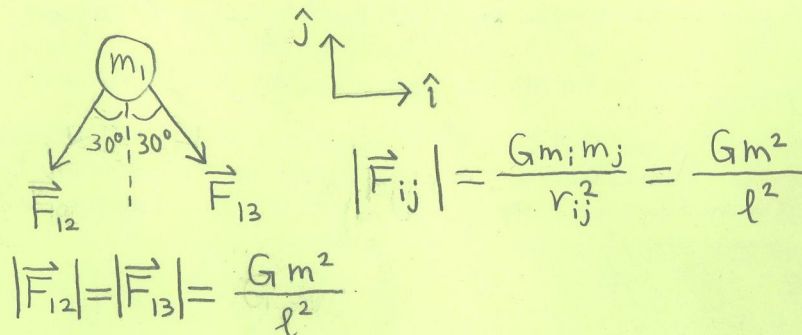 m₁
ĵ
î
30° 30°
F⃗₁₂
F⃗₁₃
|F⃗ᵢⱼ| = Gmᵢmⱼ / rᵢⱼ² = Gm² / ℓ²
|F⃗₁₂| = |F⃗₁₃| = Gm² / ℓ²